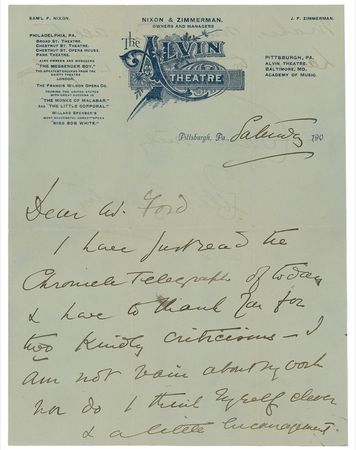 SAML. F. NIXON.
NIXON & ZIMMERMAN,
OWNERS AND MANAGERS
J. F. ZIMMERMAN.
The
ALVIN
THEATRE
PHILADELPHIA, PA.
BROAD ST. THEATRE.
CHESTNUT ST. THEATRE.
CHESTNUT ST. OPERA HOUSE.
PARK THEATRE.
ALSO OWNERS AND MANAGERS
"THE MESSENGER BOY,"
THE GREATEST SUCCESS FROM THE
GAIETY THEATRE
LONDON.
THE FRANCIS WILSON OPERA CO.
TOURING THE UNITED STATES
WITH GREAT SUCCESS IN
"THE MONKS OF MALABAR,"
AND "THE LITTLE CORPORAL."
WILLARD SPENSER'S
MOST SUCCESSFUL COMEDY OPERA
"MISS BOB WHITE."
PITTSBURGH, PA.
ALVIN THEATRE.
BALTIMORE, MD.
ACADEMY OF MUSIC.
Pittsburgh, Pa., Saturday 190
Dear Mr. Ford
I have just read the
Chronicle Telegraph of today
& have to thank you for
two kindly criticisms - I
am not vain about my work
nor do I think myself clever
& a little encouragement